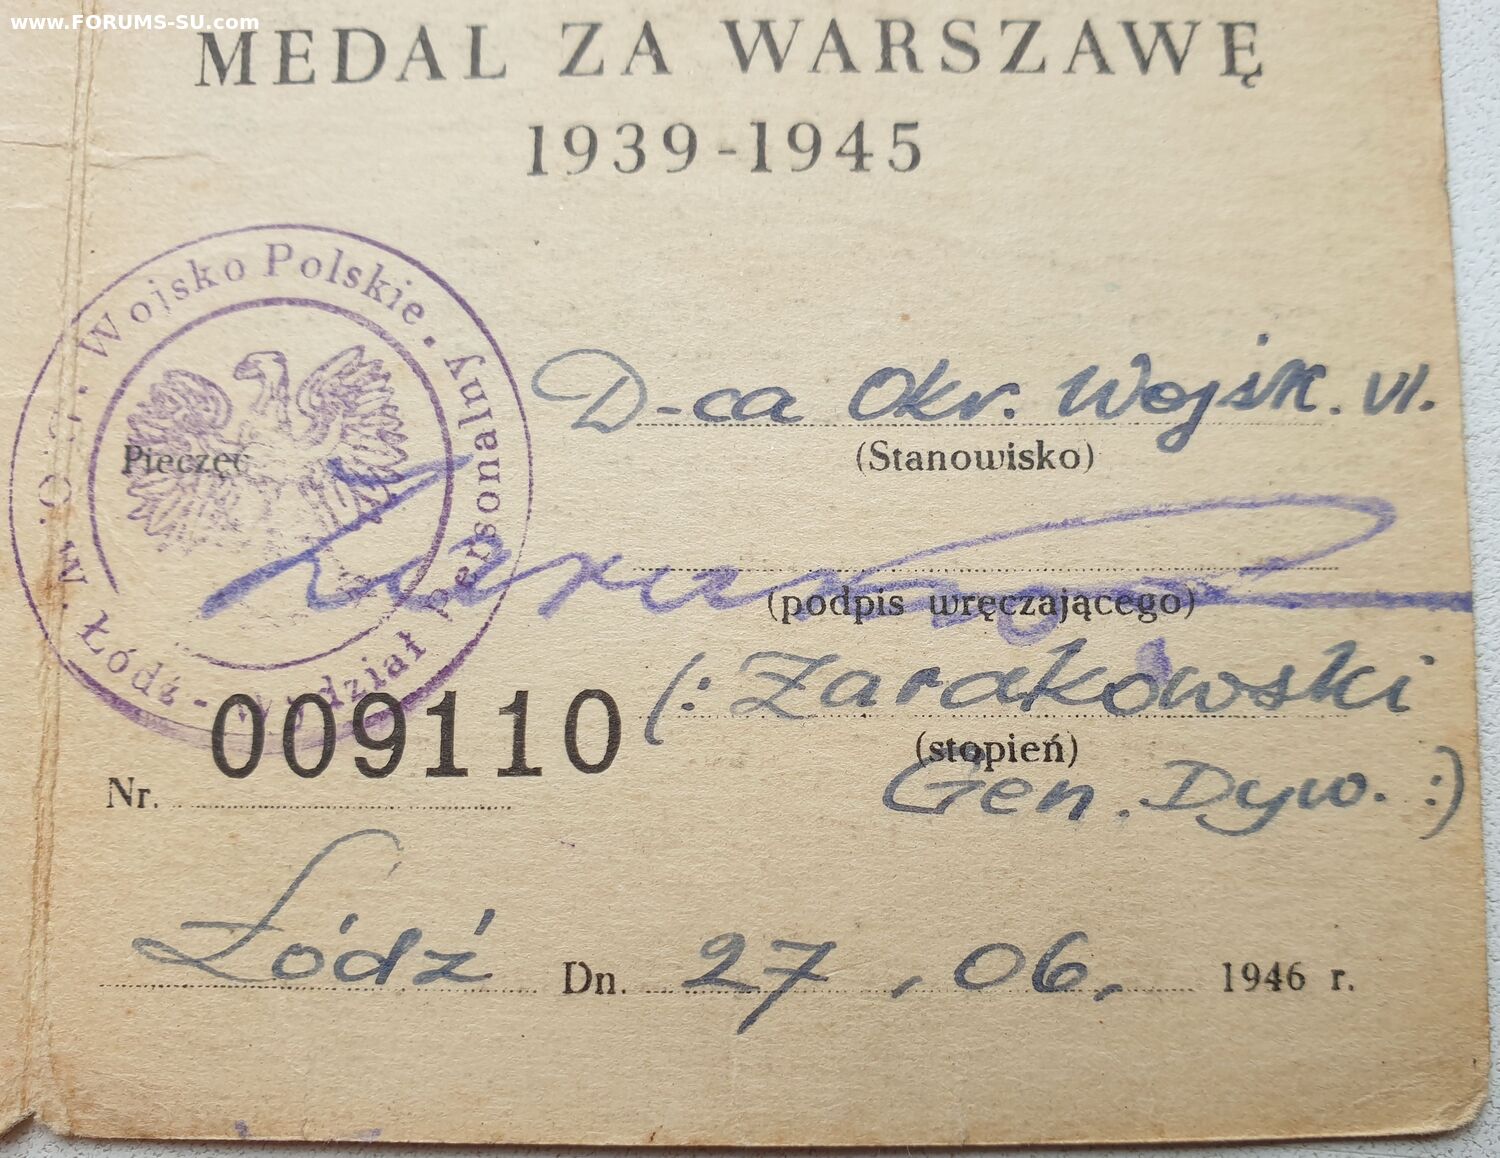 www.FORUMS-SU.com
MEDAL ZA WARSZAWĘ
1939-1945
Wojsko Polskie · Wydział Personalny
Łódź - D.O.W.
Pieczęć
D-ca Okr. Wojsk. VI.
(Stanowisko)
(podpis wręczającego)
(: Zarakowski
(stopień)
Gen. Dyw. :)
Nr. 009110
Łódź Dn. 27, 06, 1946 r.